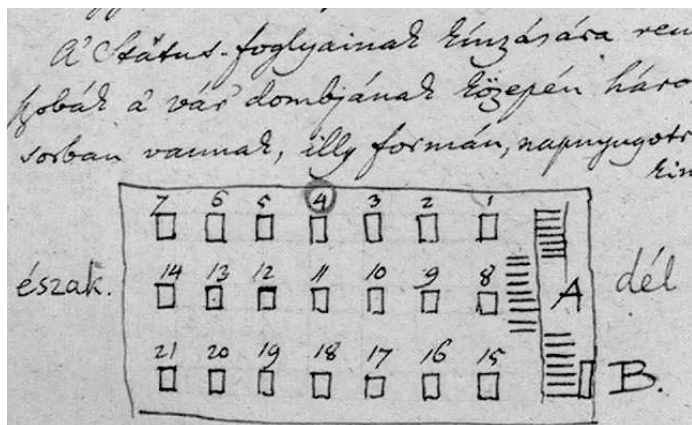 A' Státus-foglyainak kínzására ren
szobák a' vár' dombjának közepén háro
sorban vannak, illy formán, napnyugotr
kin
7 6 5 4 3 2 1
észak. 14 13 12 11 10 9 8 A dél
21 20 19 18 17 16 15 B.